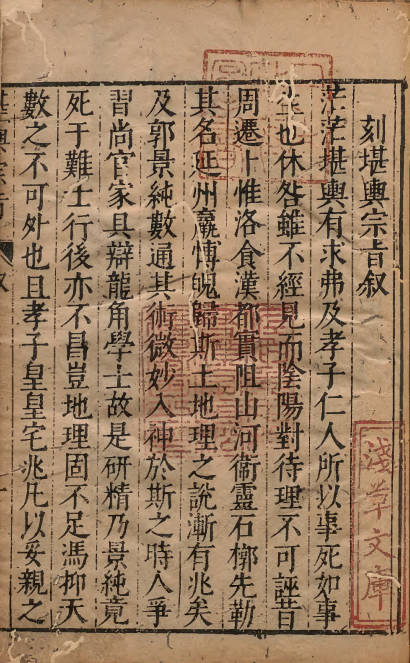 刻堪輿宗旨叙
茫茫堪輿有求弗及孝子仁人所以事死如事
也休咎雖不經見而陰陽對待理不可誣昔
周遷卜惟洛食漢都實阻山河衞靈石槨先勒
其名延州嬴博魄歸斯土地理之說漸有兆矣
及郭景純數通其術微妙入神於斯之時人爭
習尚官家具辯龍角學士故是研精乃景純竟
死于難士行後亦不昌豈地理固不足馮抑天
數之不可外也且孝子皇皇宅兆凡以妥親之
堪輿宗旨 叙
淺草文庫